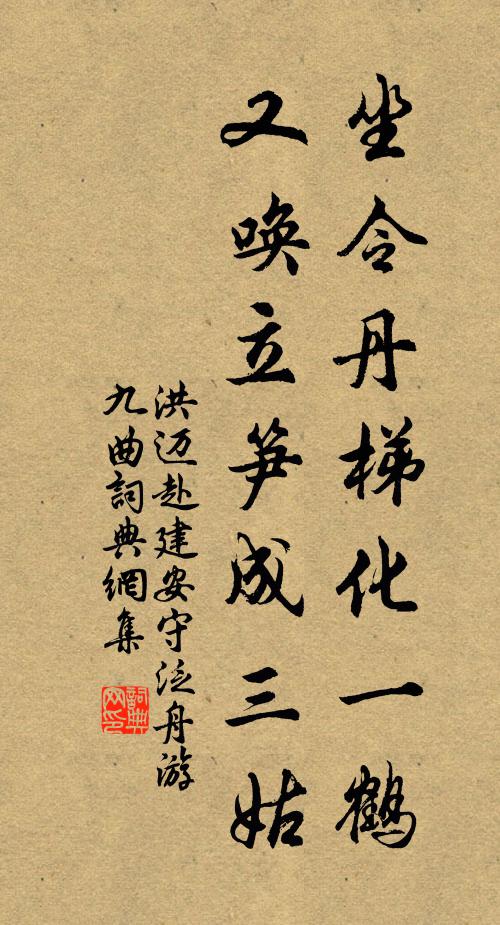 坐令丹梯化一鹤
又唤立笋成三姑
洪迈赴建安守泛舟游
九曲詞典網集
詞典
网印